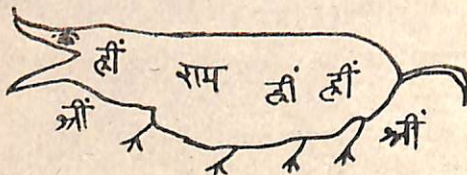 ह्रीं राम ह्रीं ह्रीं
श्रीं श्रीं